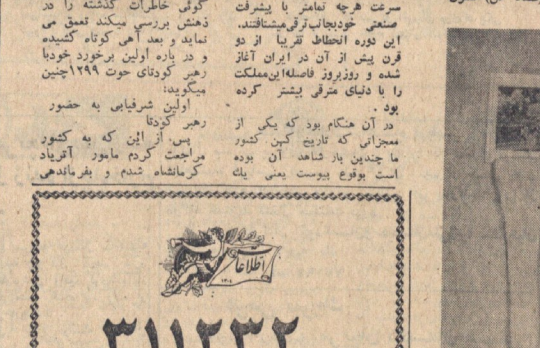 سرعت هرچه تمامتر با پیشرفت
صنعتی خودبجانب‌ترقی‌میشتافتند.
این دوره انحطاط تقریبا از دو
قرن پیش از آن در ایران آغاز
شده و روزبروز فاصله‌این‌مملکت
را با دنیای مترقی بیشتر کرده
بود.
در آن هنگام بود که یکی از
معجزاتی که تاریخ کهن کشور
ما چندین بار شاهد آن بوده
است بوقوع پیوست یعنی یك
گوئی خاطرات گذشته را در
ذهنش بررسی میکند تعمق می
نماید و بعد آهی کوتاه کشیده
و در باره اولین برخورد خودبا
رهبر کودتای حوت ۱۲۹۹چنین
میگوید:
اولین شرفیابی به حضور
رهبر کودتا
پس از این که به کشور
مراجعت کردم مامور آتریاد
کرمانشاه شدم و بفرماندهی
اطلاعات
۳۱۱۲۳۲